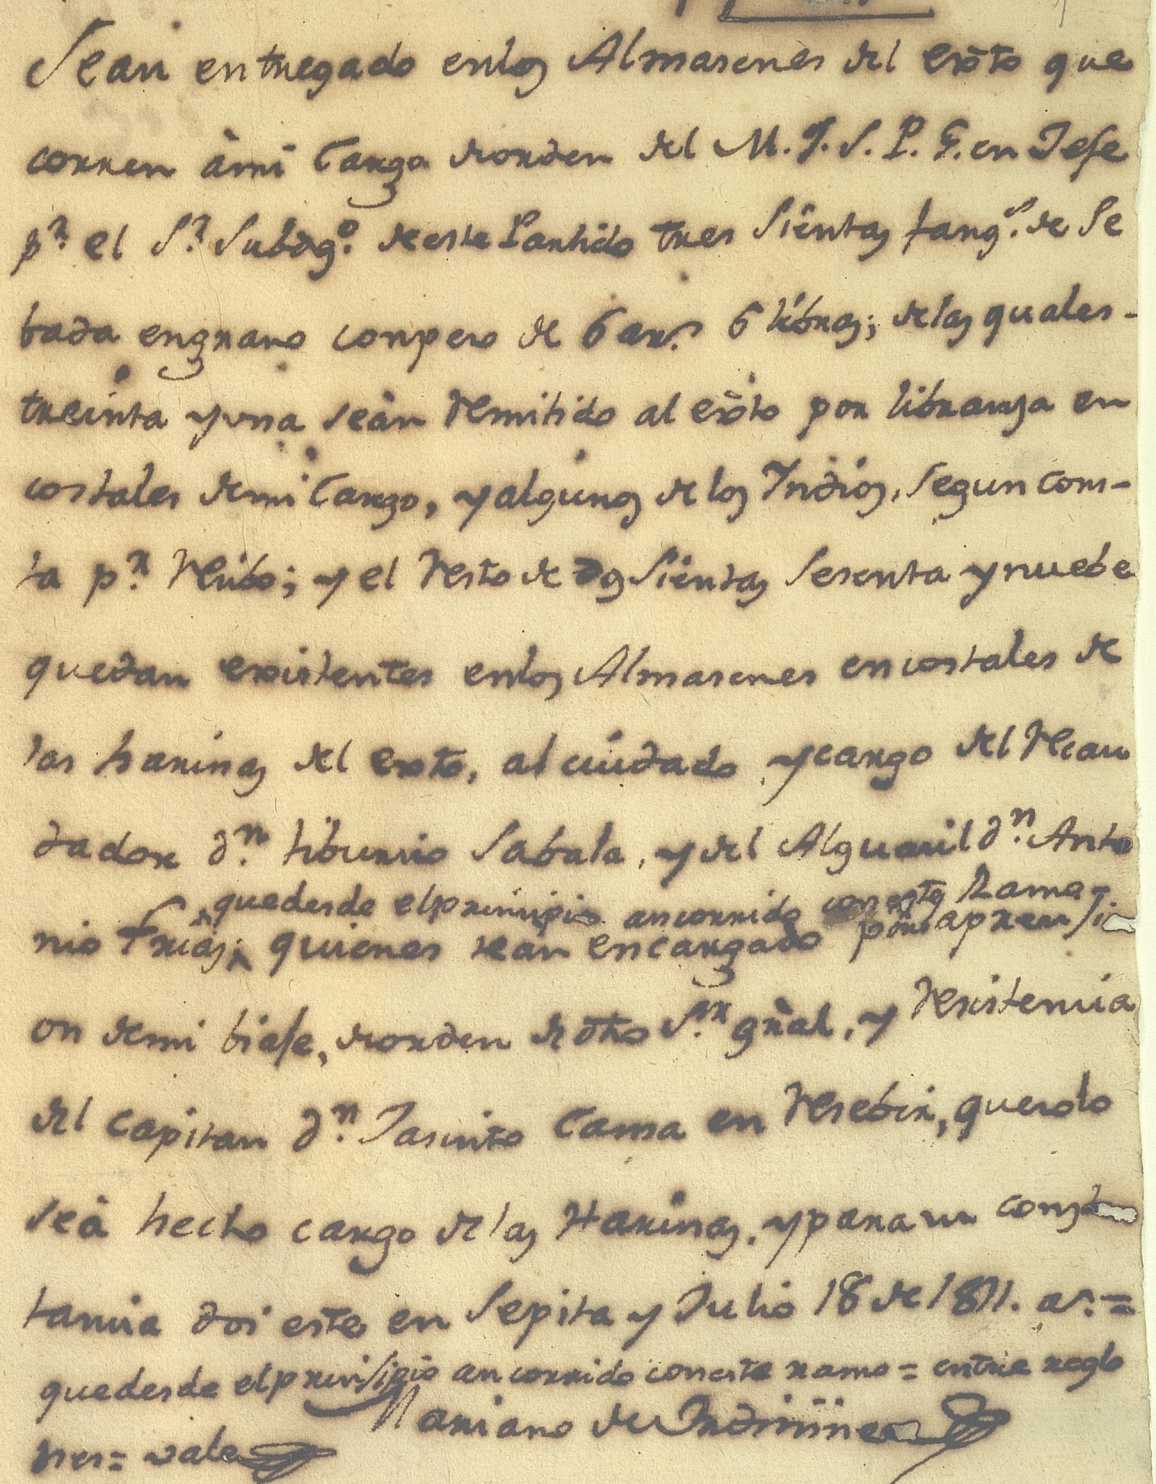 Sean entregado enlos Almasenes del exto que
corren àmi Cargo deorden del M. Y. S. P. G. en Jefe
pr. el Sr. Subdgo. deeste Partido tres sientas fangs. de Se
bada engrano conpeso de 6 arrs. 6 libras; delas quales-
treinta yuna seàn remitido al exto por libransa en
costales demi Cargo, yalgunos de los Yndios, segun cons-
ta pr. Resibo; y el Resto de dos sientas sesenta ynuebe
quedan existentes enlos Almasenes encostales de
las harinas del exto, al cuidado ycargo del Recau
dador dn. tiburcio Sabala, ydel Alguasil dn. Anto
quedesde elprinsipio ancorrido con este Ramo=
nio Frias; quienes sean encargado por apren si
on demi biaje, deorden de dho Sr. gral, y Resistencia
del capitan dn. Jasinto Cama en Resebir, quesolo
seà hecho cargo delas Harinas, ypara su cons
tancia doi este en Sepita y Julio 18 de 1811. as. =
quedesde elprinsipio ancorrido coneste ramo = entre reglo
nes = vale
Mariano de